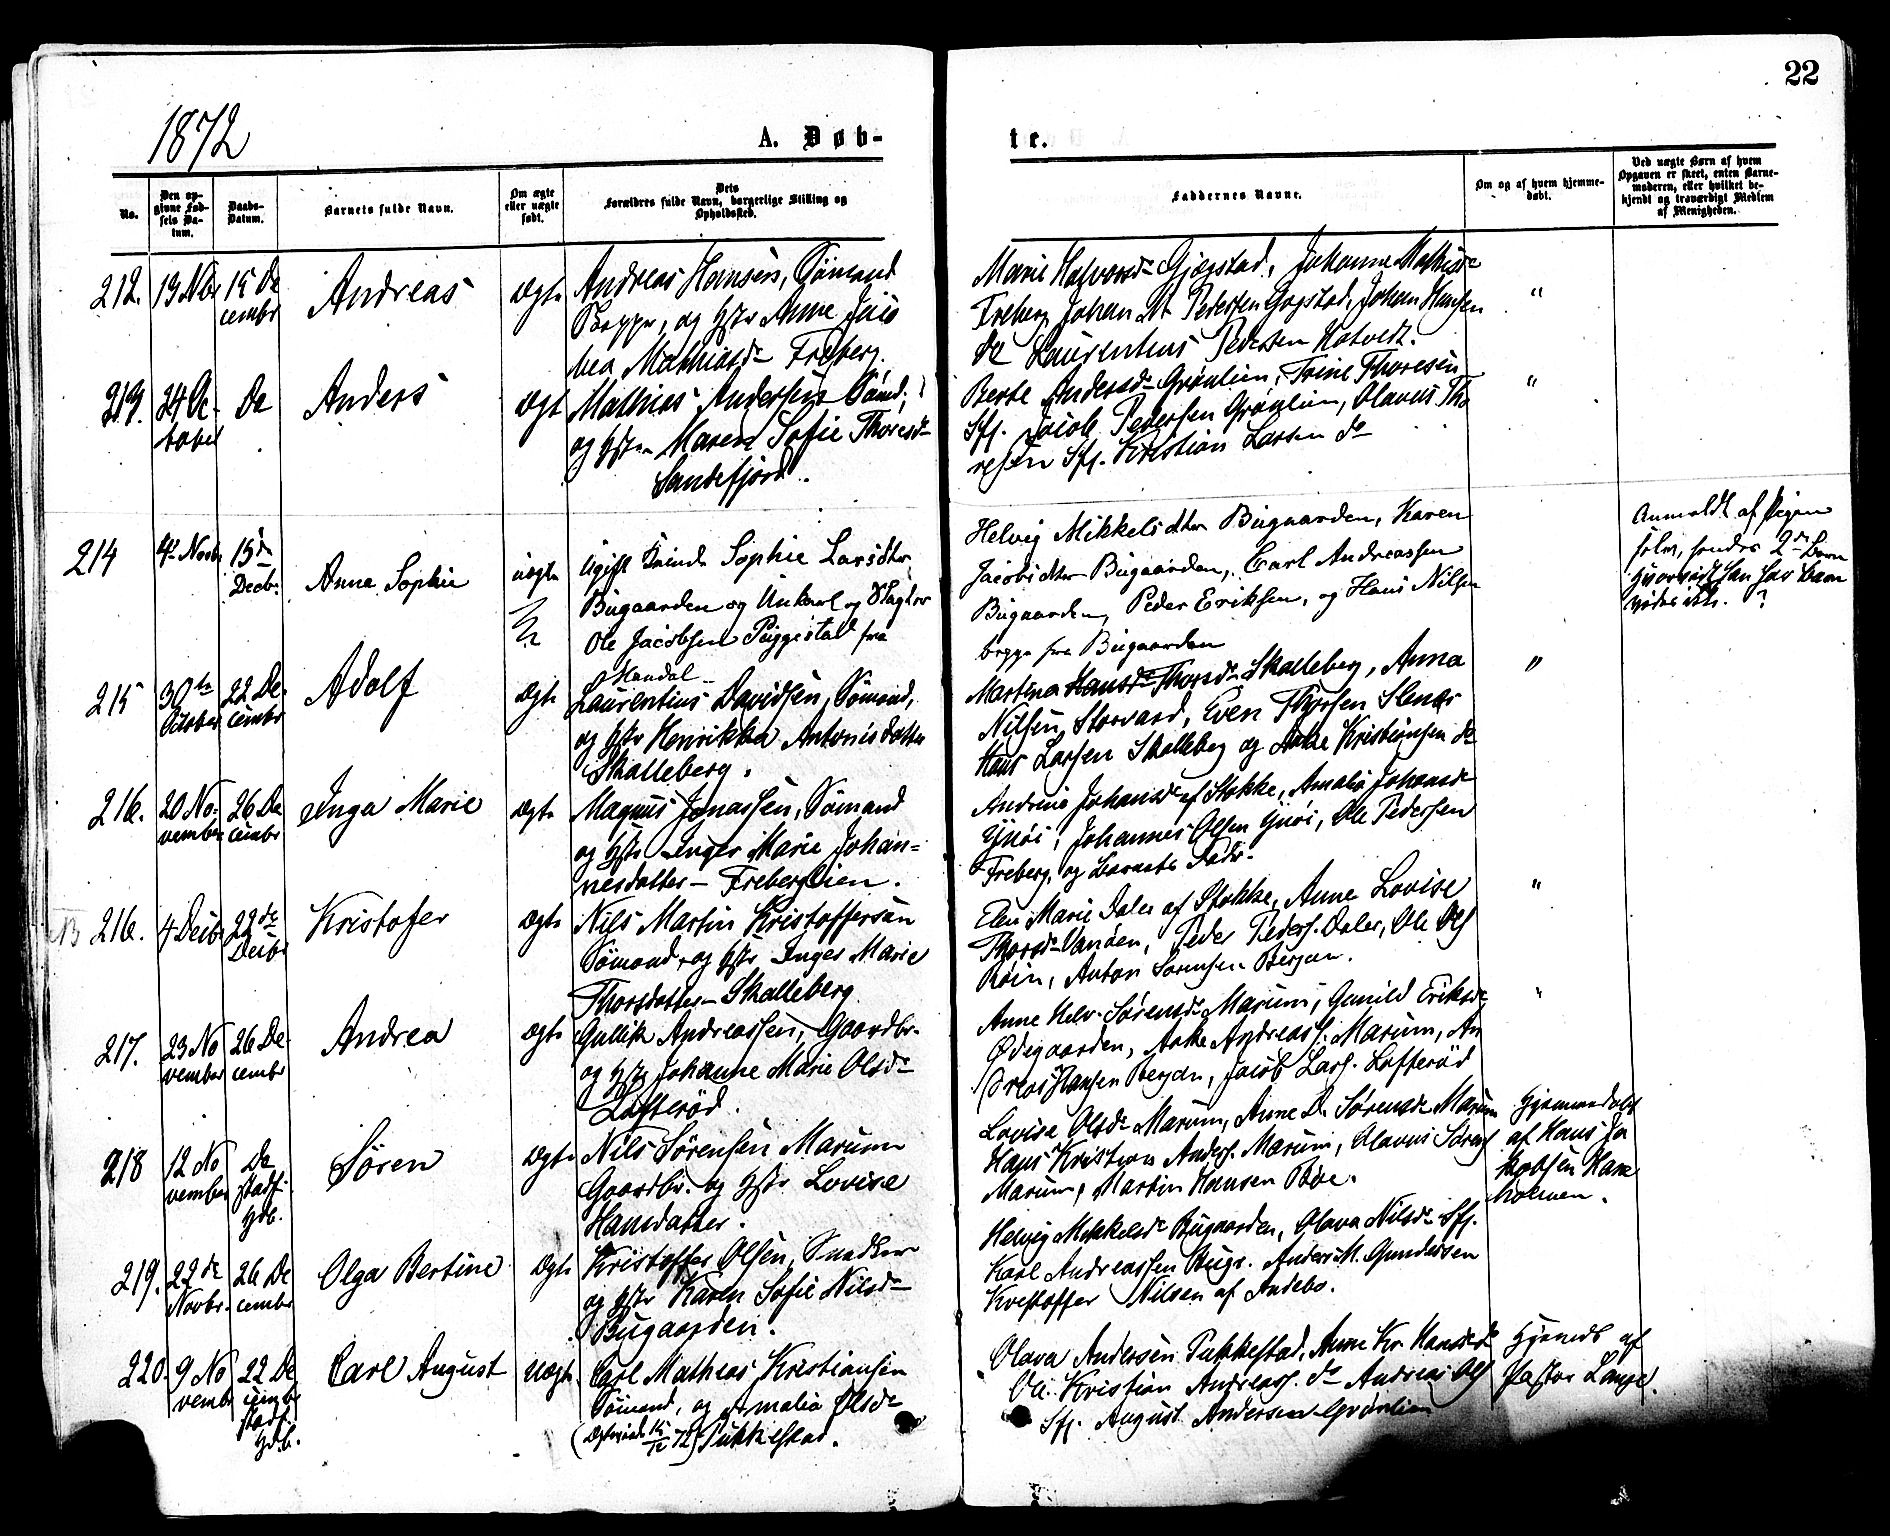 22
1872
A. Døb-
te.
No.
Den op-
givne Fød-
sels Da-
tum.
Daabs-
Datum.
Barnets fulde Navn.
Om ægte
eller uægte
født.
Dets
Forældres fulde Navn, borgerlige Stilling og
Opholdssted.
Faddernes Navne.
Om og af hvem hjemme-
døbt.
Ved uægte Børn af hvem
Opgaven er skeet, enten Barne-
moderen, eller hvilket be-
kjendt og troværdigt Medlem
af Menigheden.
212. 19 Nbr 15 De
cembr
Andreas
ægte
Andreas Hansen, Sømand
og Hstr Anne Jaco
bea Mathiasdr Freberg.
Marie Halvorsdr Gjøgstad, Johanne Mathisdr
Freberg Johan M Pedersen Gogstad, Johan Hansen
do Laurentius Pedersen Hotvedt.
"
213. 24 Oc
tober
Do
Anders
ægte
Mathias Andersen Sømd,
og Hstr Maren Sofie Thoresdr
Sandefjord.
Berte Andersdr Grønlien, Trine Thoresen
Sfj. Jacob Pedersen Grønlien, Olavus Tho
resen Sfj. Kristian Larsen do
"
214 4de Novbr 15de
Decbr.
Anna Sophie
uægte
Ugift Kvinde Sophie Larsdtr
Bugaarden og Unkarl og Slagter
Ole Jacobsen Puggestad fra
Mandal
Helvig Mikkelsdtr Bugaarden, Karen
Jacobsdtr Bugaarden, Carl Andreassen
Bugaarden, Peder Eriksen, og Hans Nilsen
begge fra Bugaarden
Anmeldt af Pigen
selv, hendes 2det Barn
hvorvidt han har Barn
vides ikke. ?
215 30te
October
22 De-
cembr
Adolf
ægte
Laurentius Davidsen, Sømand,
og Hstr Henrikka Antonisdatter
Skalleberg.
Martina Hansdr Thorsdr Skalleberg, Anna
Nilsen Storvard, Even Thorsen
Hans Larsen Skalleberg og Kristiansen do
"
216. 20 No-
vember
26 De
cembr
Inga Marie
ægte
Magnus Jonassen, Sømand
og Hstr Inger Marie Johan=
nesdatter - Freberglien.
Andrine Johansdr af Stokke, Amalia Johansdr
Johannes Olsen Ole Pedersen
Freberg, og Barnets Fader.
NB 216. 4 Decbr 22de
Decbr
Kristofer
ægte
Nils Martin Kristoffersen
Sømand, og Hstr Inger Marie
Thorsdatter - Skalleberg
Elen Marie Doler af Stokke, Anne Lovise
Thorsdr Peder Peders. Doler, Ole Ols
Anton Sørensen Bergan.
"
217. 23 No
vember
26 De-
cembr
Andrea
ægte
Gullik Andreassen, Gaardbr.
og Hstr Johanne Marie Olsdr
Lofterød.
Anne Helv. Sørensdr Marum, Gunild Eriksdr
Ødegaarden, Aske Andreass. Marum, An
dreas Hansen Bergan, Jacob Lars. Lofterød
"
218 12 No
vember
Do
stadf.
Hdb.
Søren
ægte
Nils Sørensen Marum
Gaardbr. og Hstr Lovise
Hansdatter.
Lovise Olsdr Marum, Anne D. Sørensdr Marum
Hans Kristian Anders. Marum, Olavus Sørens
Marum, Martin Hansen Bøe.
Hjemmedøbt
af Hans Ja
kobsen Hane
holmen.
219. 22de
Novbr.
26 De
cembr
Olga Bertine
ægte
Kristoffer Olsen, Snedker
og Hstr Karen Sofie Nilsdr
Bugaarden.
Helvig Mikkelsdr Bugaarden, Olava Nilsdr Sfj.
Karl Andreassen Bugr. Anders M. Gundersen
Kristoffer Nilsen af Andebo.
220. 9 No
vembr
22 De
cembr
stadf.
Hdb.
Carl August
uægte
Carl Mathias Kristiansen
Sømand, og Amalia Olsdr
Pukkestad.
Olava Andersen Pukkestad, Anne Kr. Hansdr do
Ole Kristian Andreass. do Andreas Ols
Sfj. August Andersen Grønlien
Hjemdb af
Pastor Lange.